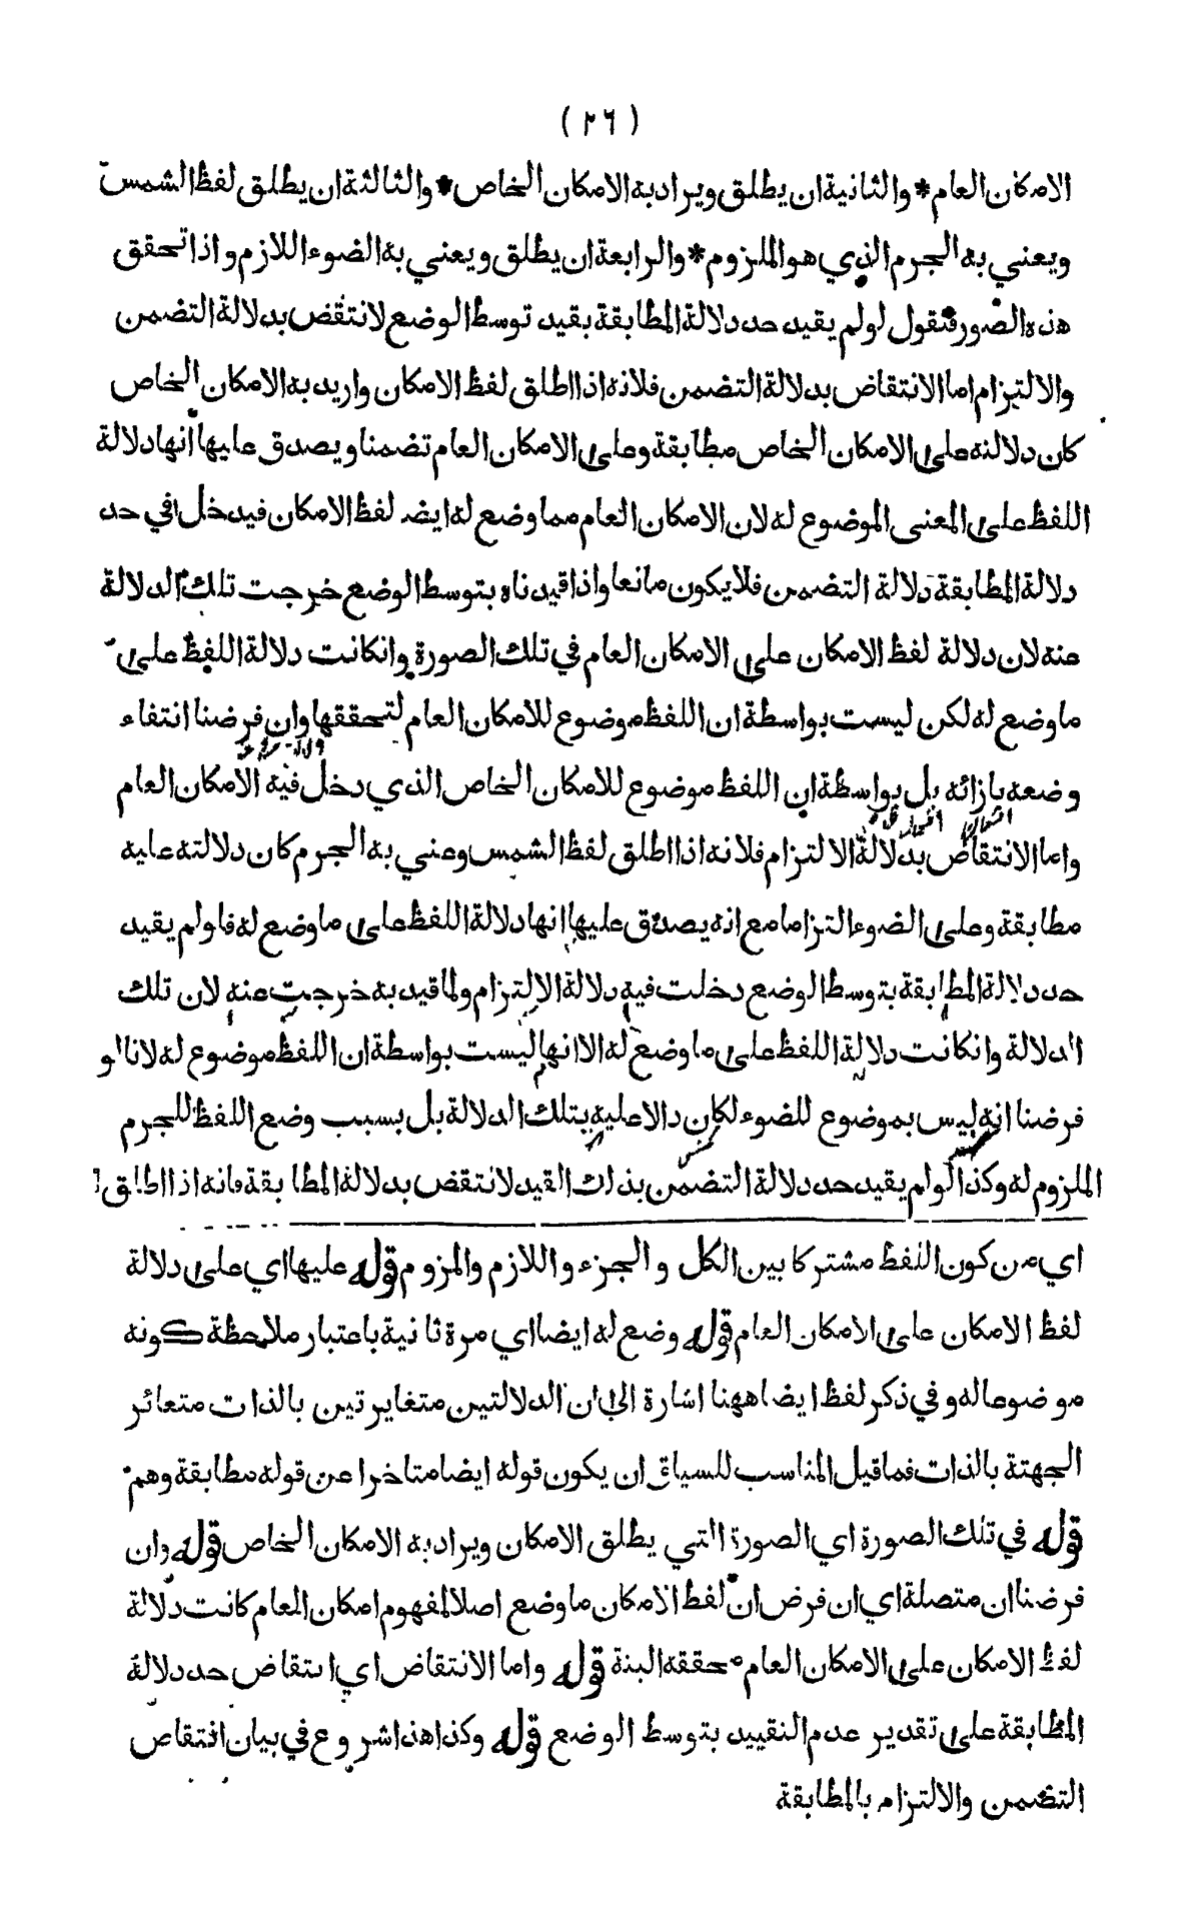 (٢٦)
الامكان العام * والثانية ان يطلق ويراد به الامكان الخاص * والثالثة ان يطلق لفظ الشمس
ويعني به الجرم الذي هو الملزوم * والرابعة ان يطلق ويعني به الضوء اللازم واذا تحقق
هذه الصور فنقول لو لم يقيد حد دلالة المطابقة بقيد توسط الوضع لانتقض بدلالة التضمن
والالتزام اما الانتقاض بدلالة التضمن فلانه اذا اطلق لفظ الامكان واريد به الامكان الخاص
كان دلالته على الامكان الخاص مطابقة وعلى الامكان العام تضمنا ويصدق عليها انها دلالة
اللفظ على المعنى الموضوع له لان الامكان العام مما وضع له ايضا لفظ الامكان فيدخل في حد
دلالة المطابقة دلالة التضمن فلا يكون مانعا واذا قيدناه بتوسط الوضع خرجت تلك الدلالة
عنه لان دلالة لفظ الامكان على الامكان العام في تلك الصورة وانكانت دلالة اللفظ على
ما وضع له لكن ليست بواسطة ان اللفظ موضوع للامكان العام لتحققها وان فرضنا انتفاء
وضعه بازائه بل بواسطة ان اللفظ موضوع للامكان الخاص الذي دخل فيه الامكان العام
واما الانتقاض بدلالة الالتزام فلانه اذا اطلق لفظ الشمس وعني به الجرم كان دلالته عليه
مطابقة وعلى الضوء التزاما مع انه يصدق عليها انها دلالة اللفظ على ما وضع له فلو لم يقيد
حد دلالة المطابقة بتوسط الوضع دخلت فيه دلالة الالتزام ولما قيد به خرجت عنه لان تلك
الدلالة وانكانت دلالة اللفظ على ما وضع له الا انها ليست بواسطة ان اللفظ موضوع له لانا لو
فرضنا انه ليس بموضوع للضوء لكان دالا عليه بتلك الدلالة بل بسبب وضع اللفظ للجرم
الملزوم له وكذا لو لم يقيد حد دلالة التضمن بذلك القيد لانتقض بدلالة المطابقة فانه اذا اطلق
اي من كون اللفظ مشتركا بين الكل والجزء واللازم والملزوم قوله عليها اي على دلالة
لفظ الامكان على الامكان العام قوله وضع له ايضا اي مرة ثانية باعتبار ملاحظة كونه
موضوعا له وفي ذكر لفظ ايضا ههنا اشارة الى ان الدلالتين متغايرتين بالذات متعائر
الجهتة بالذات فما قيل المناسب للسياق ان يكون قوله ايضا متاخرا عن قوله مطابقة وهم
قوله في تلك الصورة اي الصورة التي يطلق الامكان ويراد به الامكان الخاص قوله وان
فرضنا ان متصلة اي ان فرض ان لفظ الامكان ما وضع اصلا لمفهوم امكان العام كانت دلالة
لفظ الامكان على الامكان العام محققه البتة قوله واما الانتقاض اي انتقاض حد دلالة
المطابقة على تقدير عدم التقييد بتوسط الوضع قوله وكذا هذا شروع في بيان انتقاص
التضمن والالتزام بالمطابقة